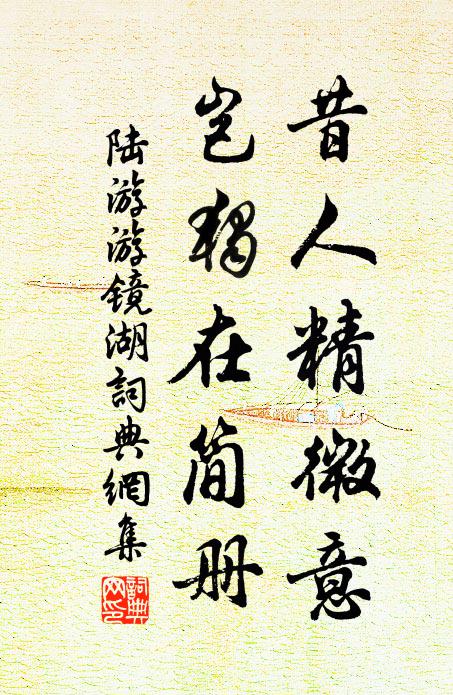 昔人精微意
岂独在简册
陆游游镜湖詞典網集
詞典網印